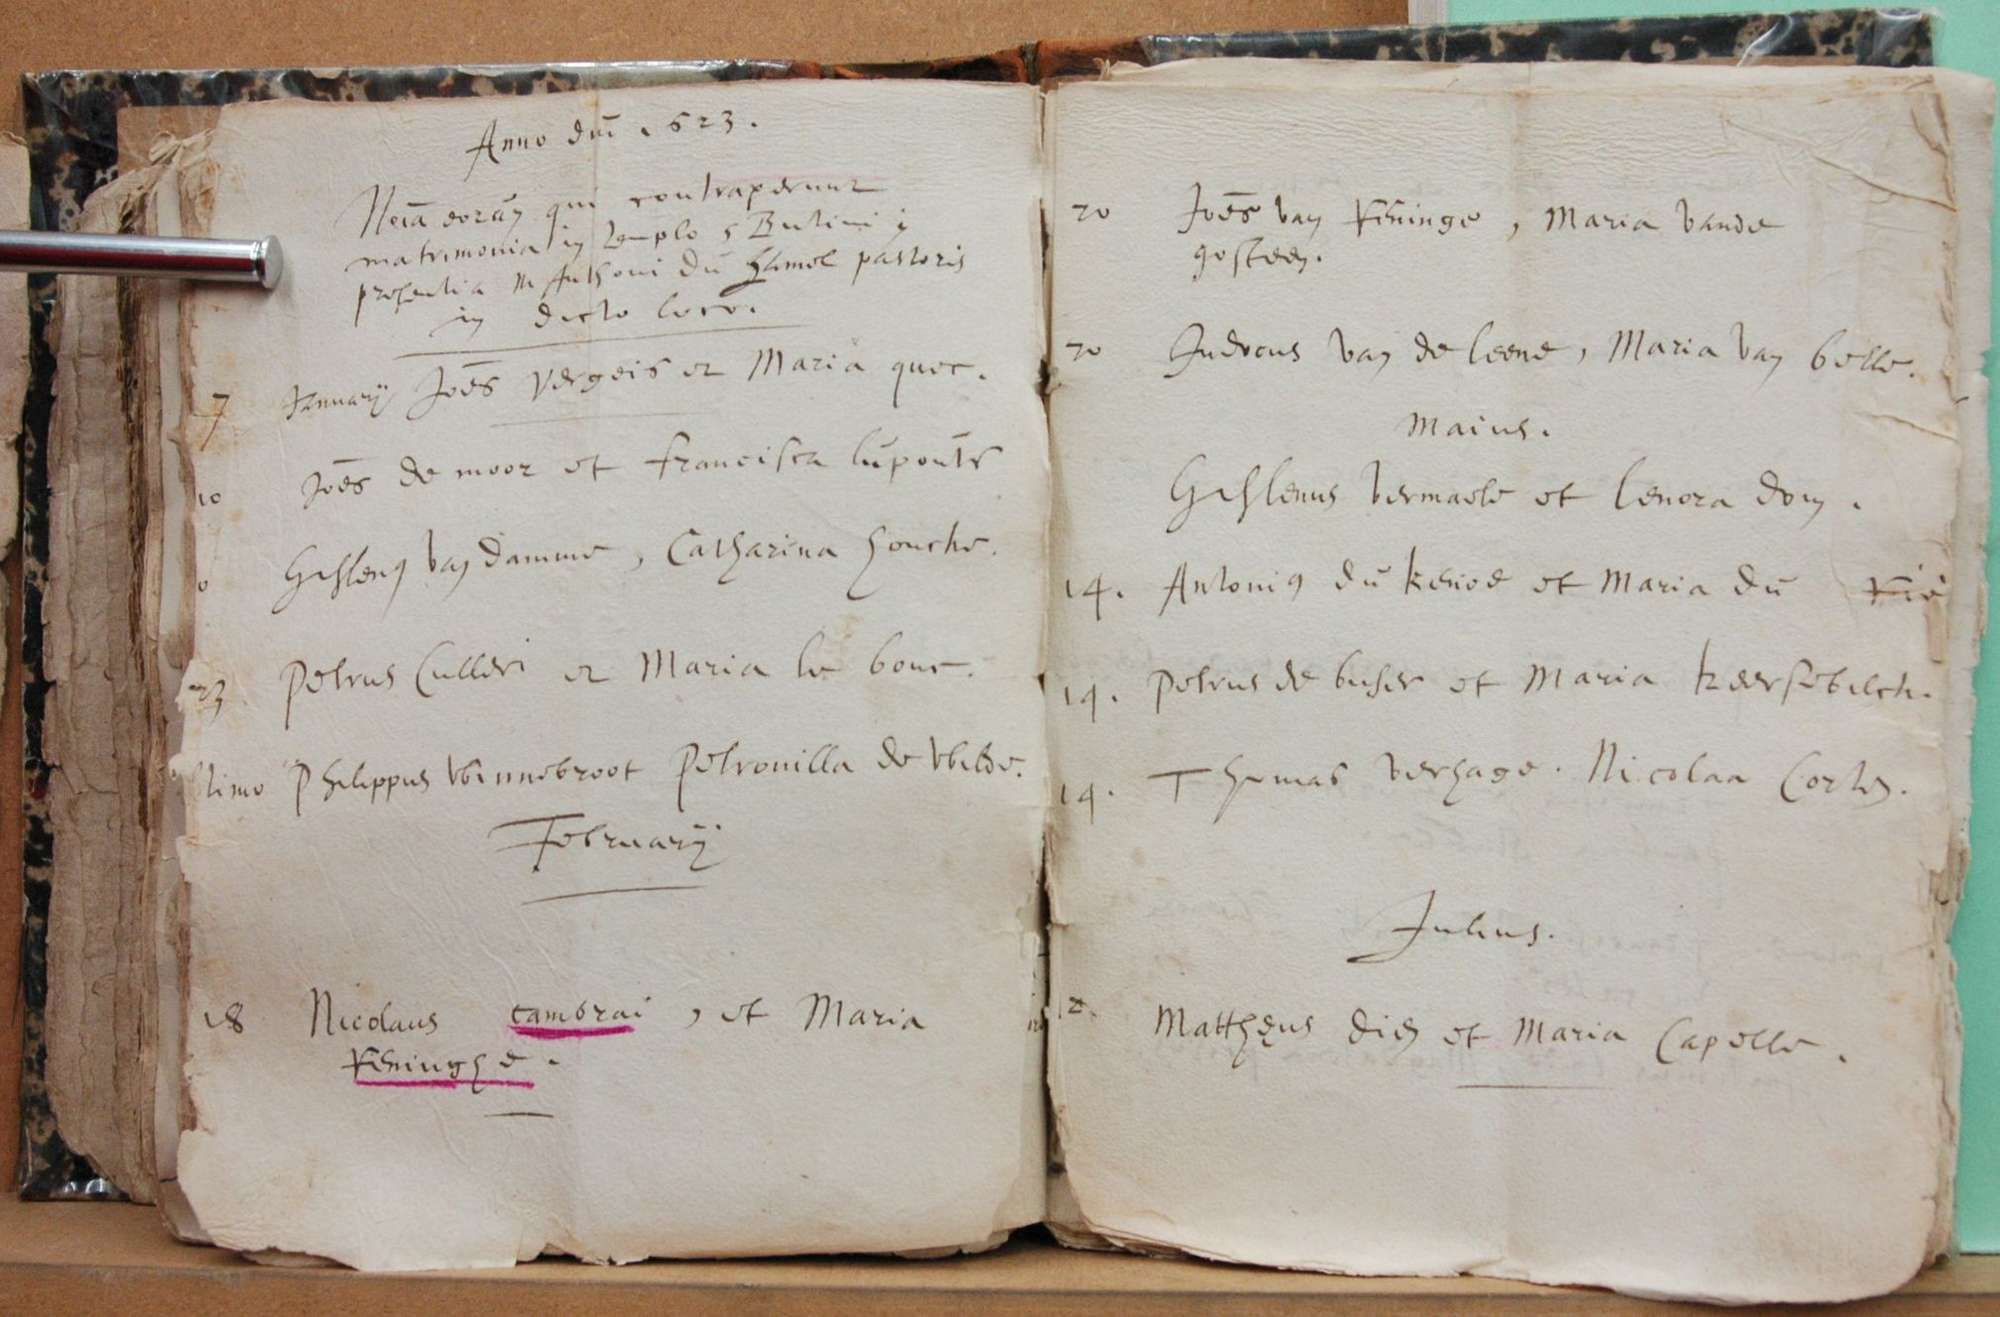 Anno dni 1623.
Noīa eorum qui contraxerunt
matrimonia in templo s Bertini i
presentia m Anthoni du Hamel pastoris
in dicto loco.
7 January Joēs Vergeis et Maria quec.
10 Joēs de moor et francisca
Ghislenus van damme, Catharina houcke.
23 Petrus Culleri et Maria le bouc.
ltimo Philippus Winnebroot Petronilla de Wilde.
February
18 Nicolaus Cambrai, et Maria
Keninghe.
20 Joēs van Keninge, Maria vande
gosteen.
20 Judocus van de leene, Maria van belle.
Maius.
Ghislenus Vermaele et lenora dom.
14. Antonius du kenoe et Maria du
14. Petrus de buser et Maria keersebilck.
14. Thomas Verhage. Nicolaa Corten.
Julius.
2. Mattheus dien et Maria Capelle.